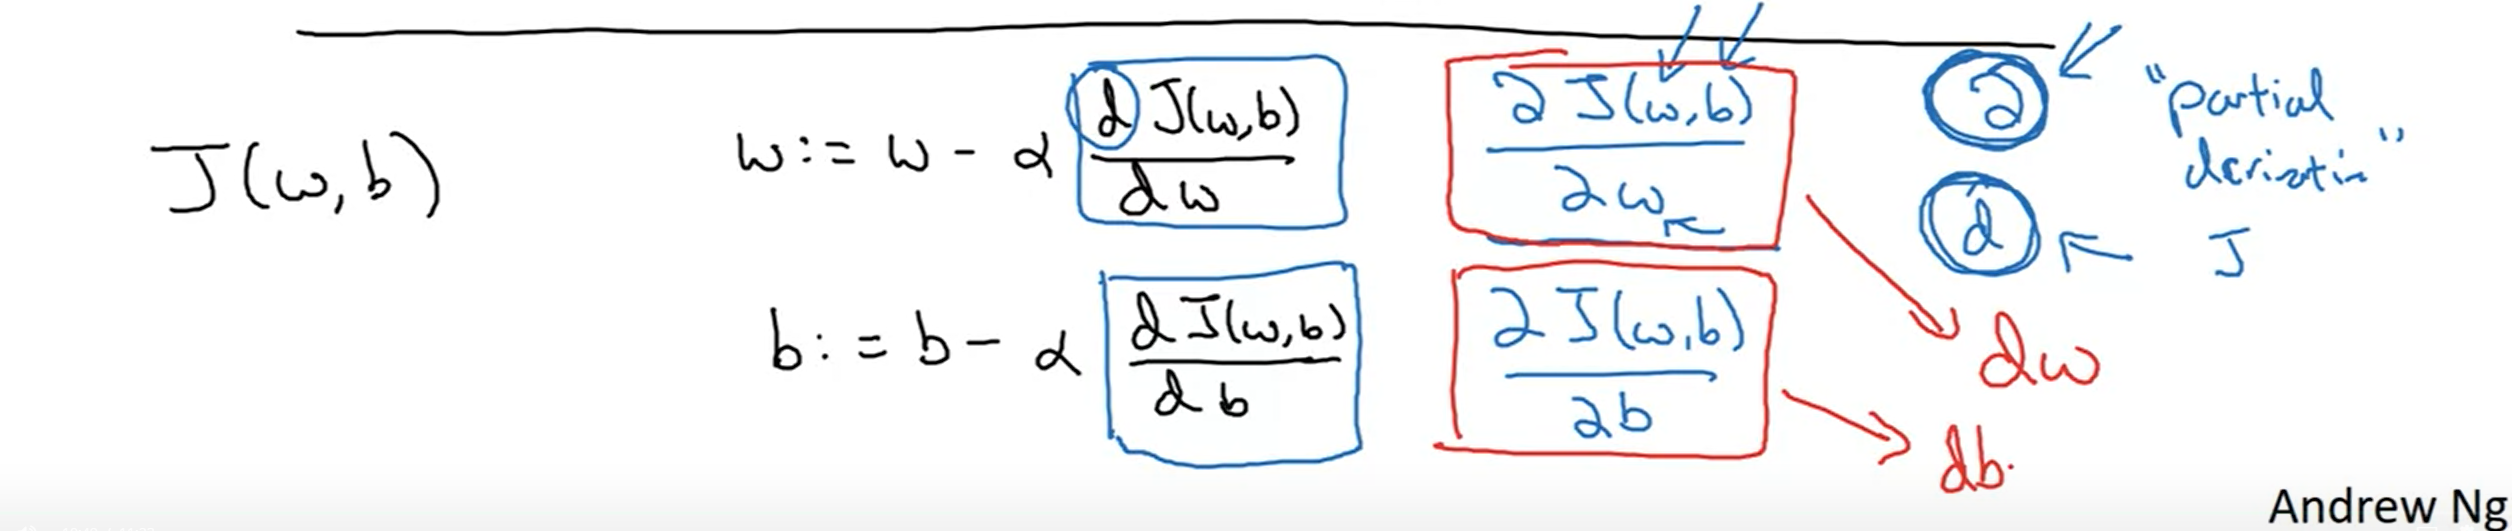 J(w,b)
w := w - α dJ(w,b)/dw
∂J(w,b)/∂w
∂
"partial
derivative"
d
J
b := b - α dJ(w,b)/db
∂J(w,b)/∂b
dw
db
Andrew Ng